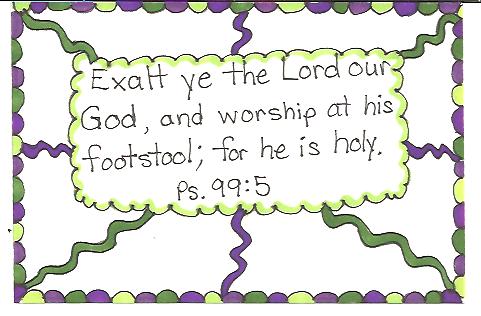 Exalt ye the Lord our
God, and worship at his
footstool; for he is holy.
Ps. 99:5